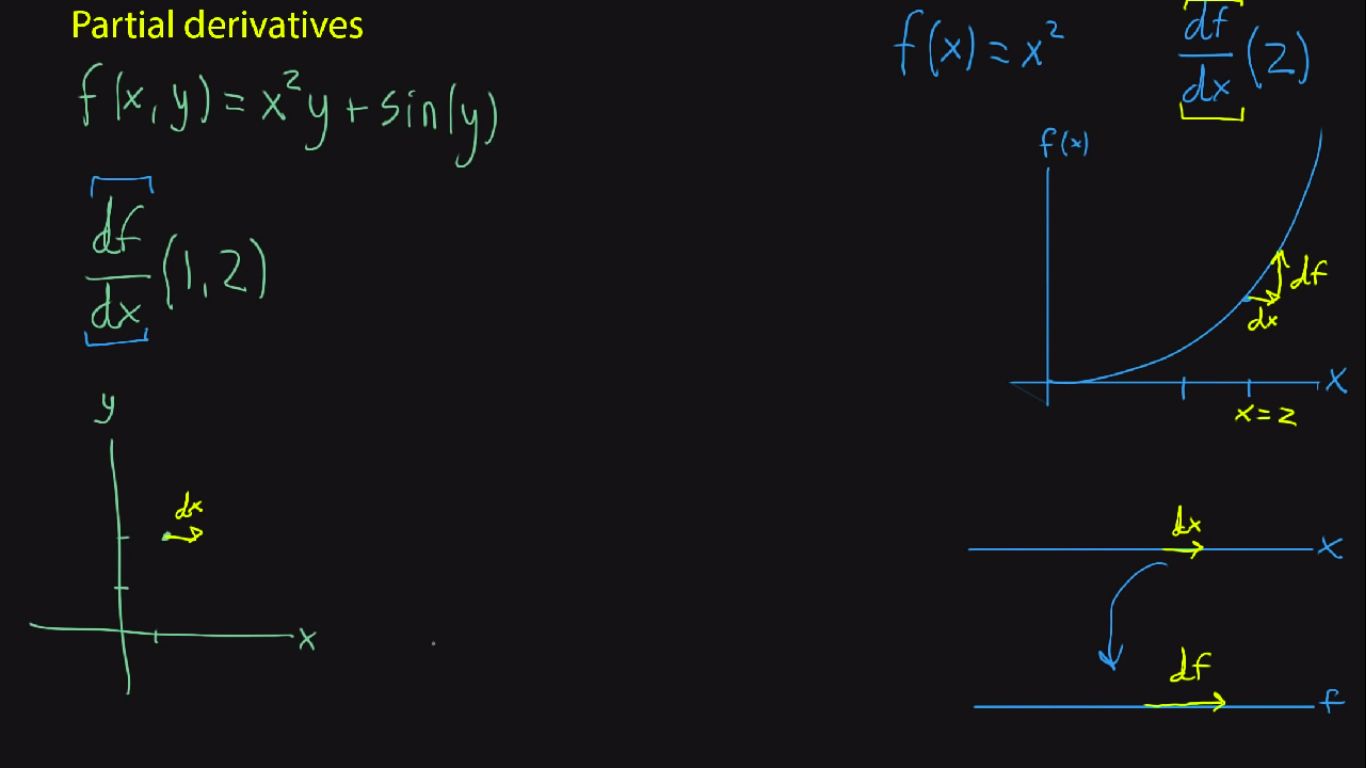 Partial derivatives
f(x,y) = x²y + sin(y)
df/dx (1,2)
y
dx
x
f(x) = x²
df/dx (2)
f(x)
df
dx
x
x=2
dx
x
df
f